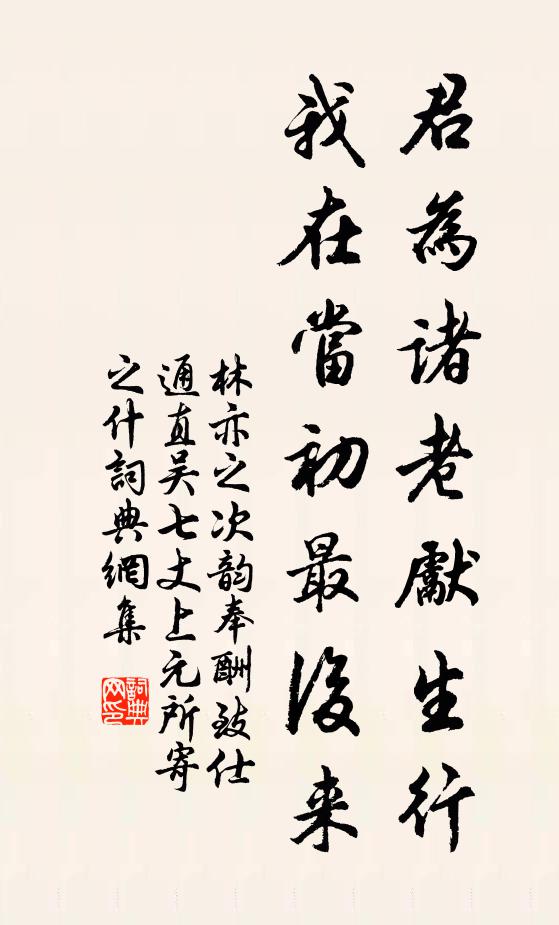 君為諸老獻生行
我在當初最後来
林亦之次韵奉酬致仕
通直吴七丈上元所寄
之什詞典網集
詞典
网印